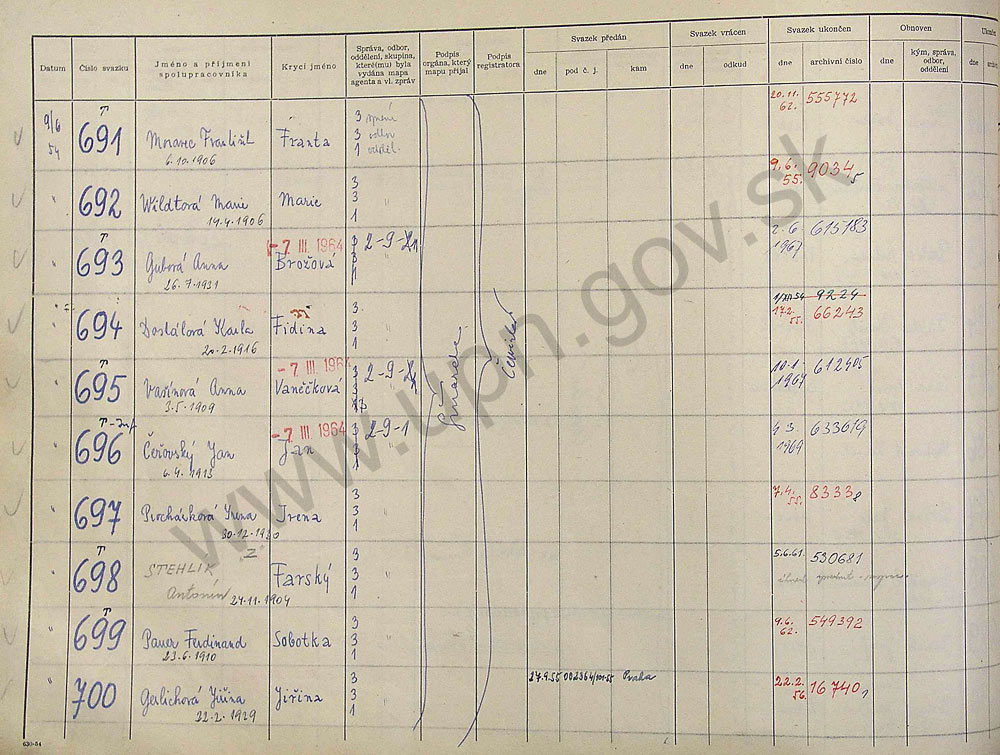 Datum
Číslo svazku
Jméno a příjmení
spolupracovníka
Krycí jméno
Správa, odbor,
oddělení, skupina,
které(mu) byla
vydána mapa
agenta a vl. zpráv
Podpis
orgána, který
mapu přijal
Podpis
registrátora
Svazek předán
dne
pod č. j.
kam
Svazek vrácen
dne
odkud
Svazek ukončen
dne
archivní číslo
Obnoven
dne
kým, správa,
odbor,
oddělení
dne
9/6
54
T
691
Moravec František
6.10.1906
Franta
3 správa
3 odbor
1 odděl.
20.11.
62.
555772
" 692
Wildtová Marie
14.4.1906
Marie
3
3
1
9.6.
55.
90345
T
693
Gubová Anna
26.7.1931
-7. III. 1964
Brožová
3
3
1
2. 6
1967
615183
694
Dostálová Karla
20.2.1916
Fidina
3
3
1
9224
17.2.
55.
66243
T
695
Vašínová Anna
3.5.1909
-7. III. 1964
Vaněčková
10.1.
1967
612405
T-Inf
696
Čeřovský Jan
6.4.1913
-7. III. 1964
Jan
2-9-1
3
3
1
4 3.
1969
633619
" 697
Irena
30.12.
Irena
3
3
1
7.4.
55.
83338
T
698
STEHLÍK
"Z"
Antonín
24.11.1904
Farský
3
3
1
5.6.61.
530681
T
" 699
Pauer Ferdinand
23.6.1910
Sobotka
3
3
1
9.6.
62.
549392
" 700
Gerlichová Jiřina
22.2.1929
Jiřina
3
3
1
27.9.55
Praha
22.2.
56.
16740,
630-54
www.upn.gov.sk